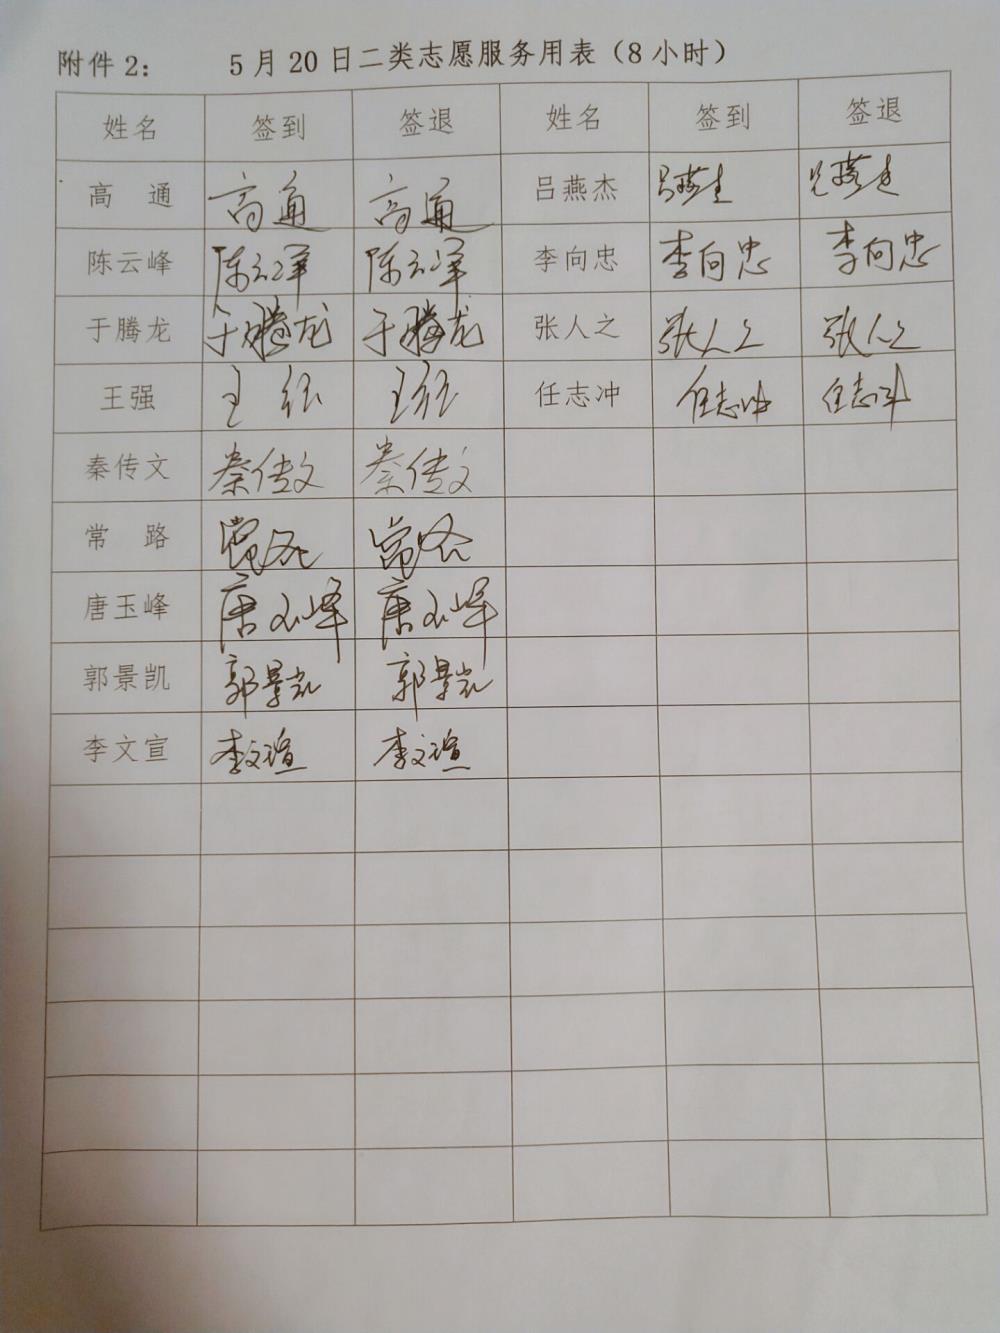 附件2： 5月20日二类志愿服务用表（8小时）
姓名 签到 签退 姓名 签到 签退
高 通 高通 高通 吕燕杰 吕燕杰 吕燕杰
陈云峰 陈云峰 陈云峰 李向忠 李向忠 李向忠
于腾龙 于腾龙 于腾龙 张人之 张人之 张人之
王强 王强 王强 任志冲 任志冲 任志冲
秦传文 秦传文 秦传文
常 路 常路 常路
唐玉峰 唐玉峰 唐玉峰
郭景凯 郭景凯 郭景凯
李文宣 李文瑄 李文瑄